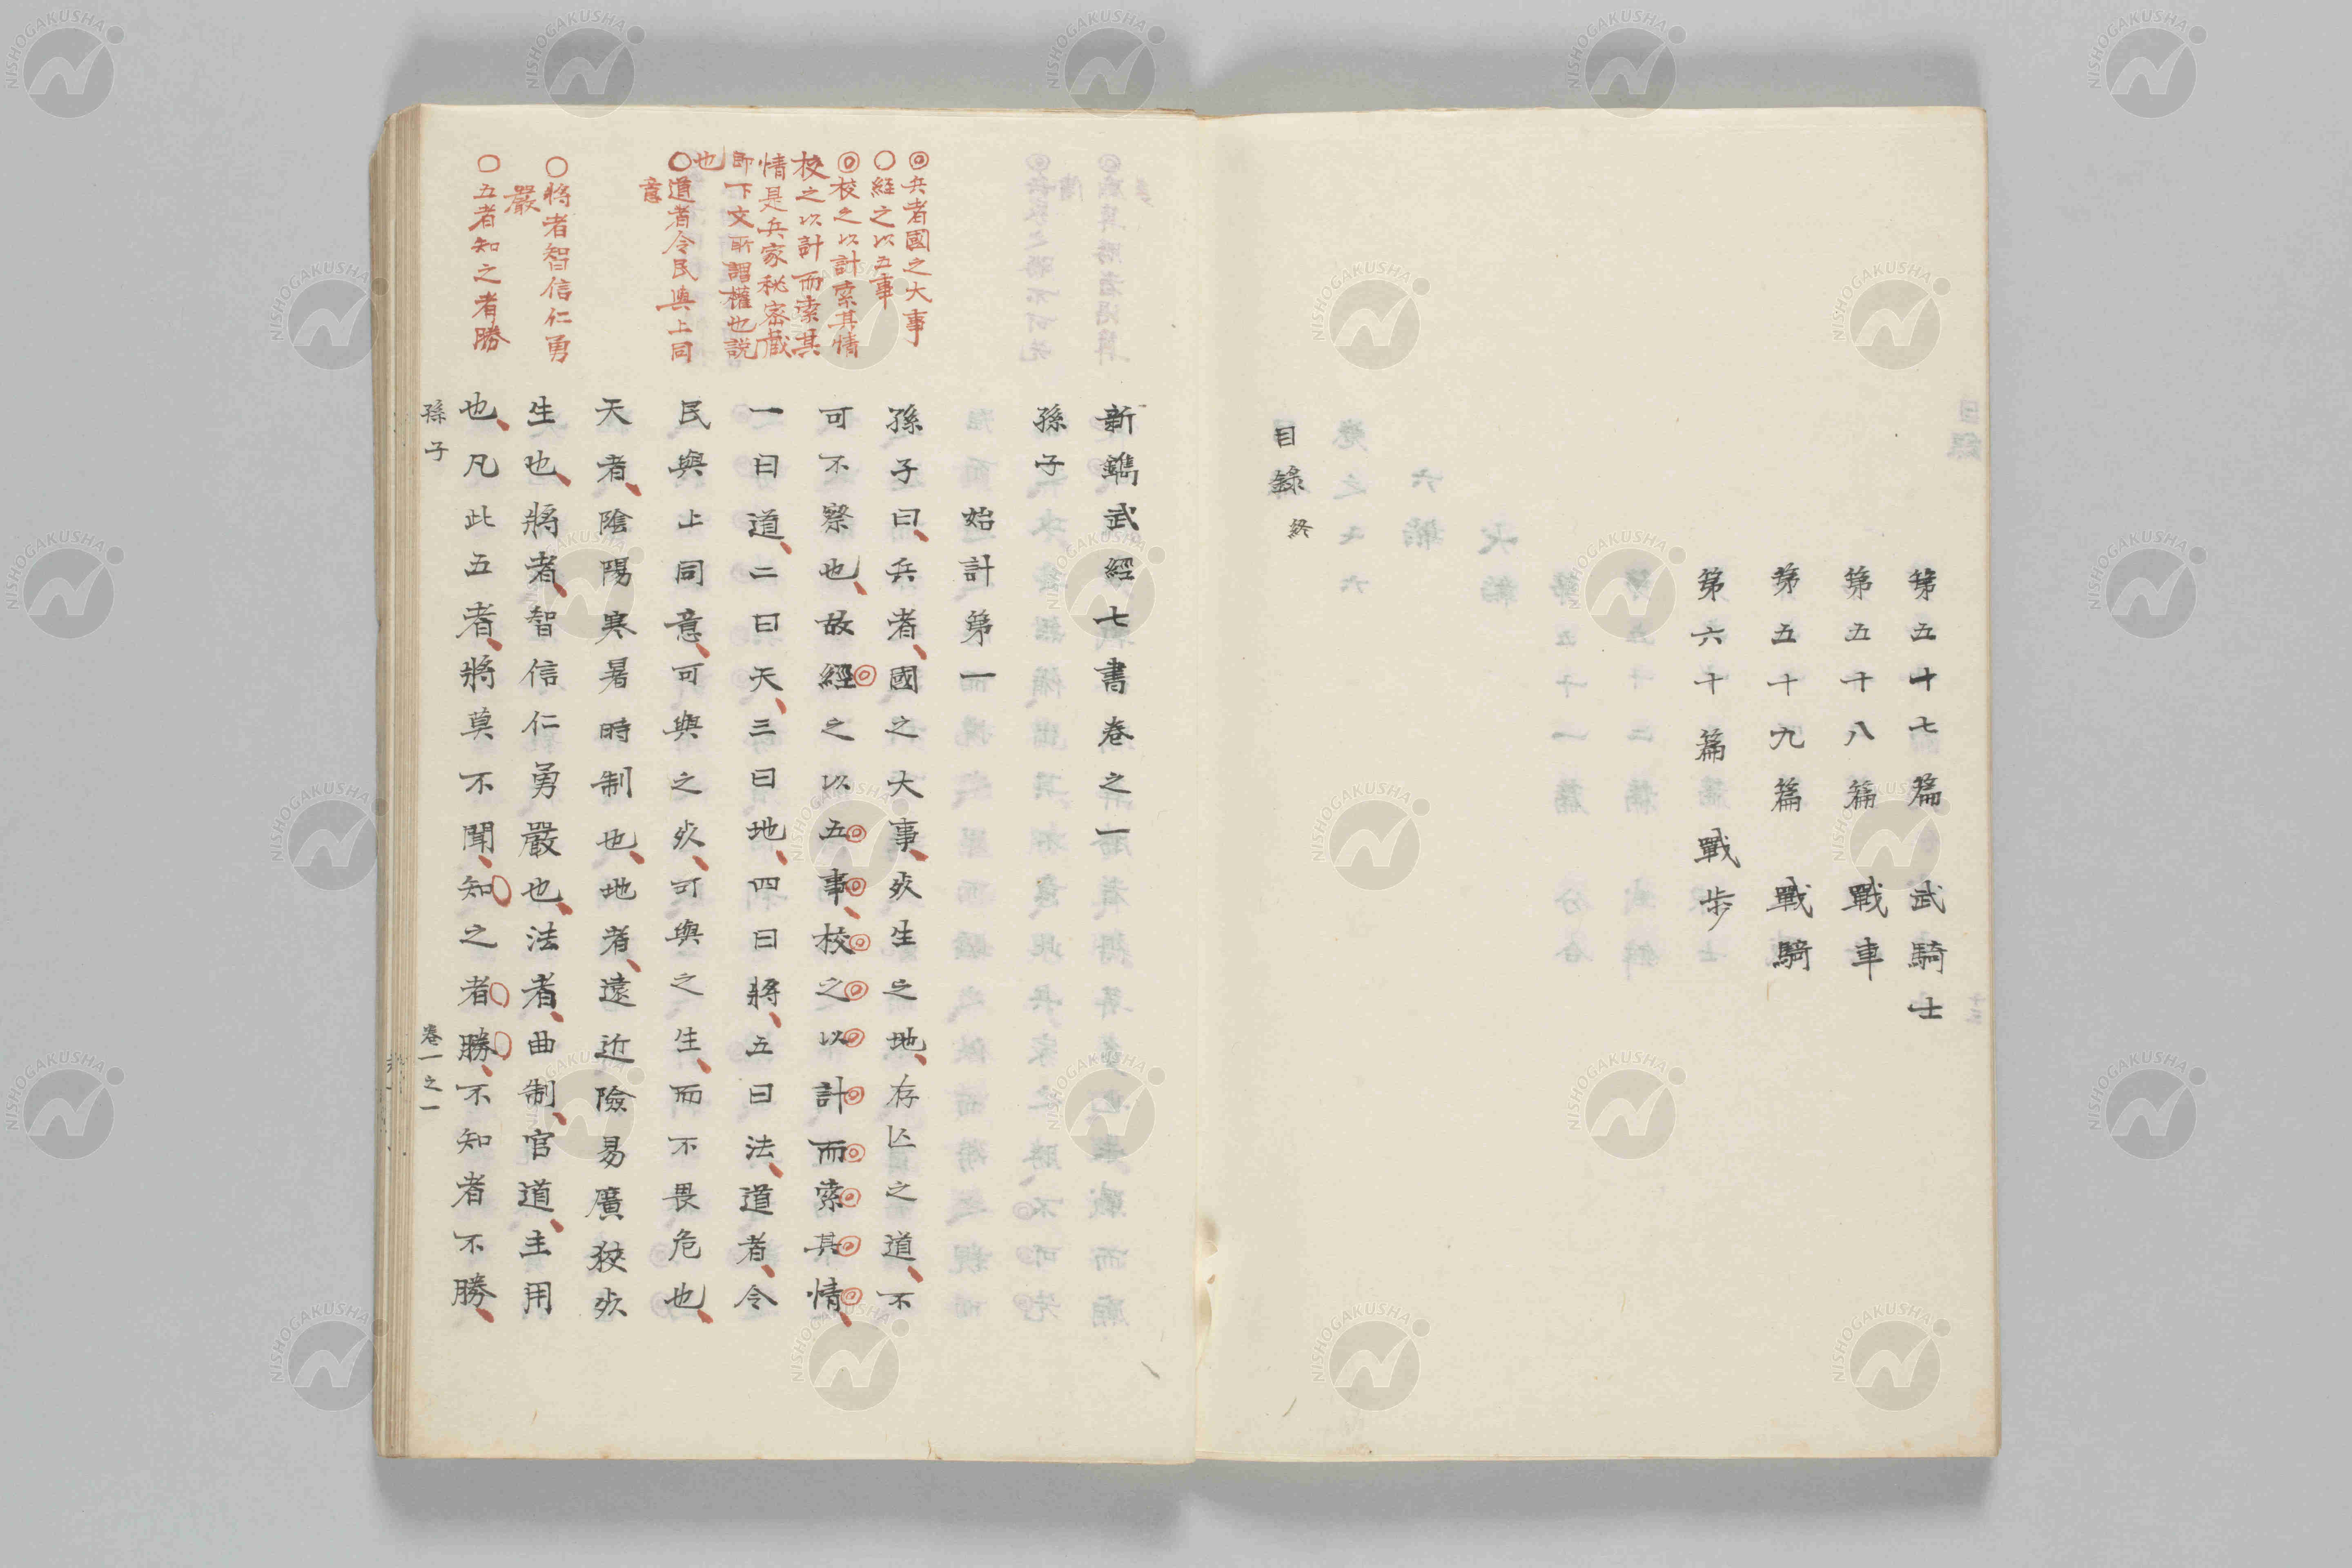 第五十七篇 武騎士
第五十八篇 戰車
第五十九篇 戰騎
第六十篇 戰步
目錄 終
新鐫武經七書卷之一
孫子
始計第一
孫子曰、兵者、國之大事、死生之地、存亡之道、不
可不察也、故經之以五事、校之以計而索其情、
一曰道、二曰天、三曰地、四曰將、五曰法、道者、令
民與上同意、可與之死、可與之生、而不畏危也、
天者、陰陽寒暑時制也、地者、遠近險易廣狹死
生也、將者、智信仁勇嚴也、法者、曲制、官道、主用
也、凡此五者、將莫不聞、知之者勝、不知者不勝、
孫子 卷一之一
◎兵者國之大事
○経之以五事
◎校之以計索其情
校之以計而索其
情是兵家秘密蔵
即下文所謂權也説
也
○道者令民與上同
意
○將者智信仁勇
嚴
○五者知之者勝
NISHOGAKUSHA